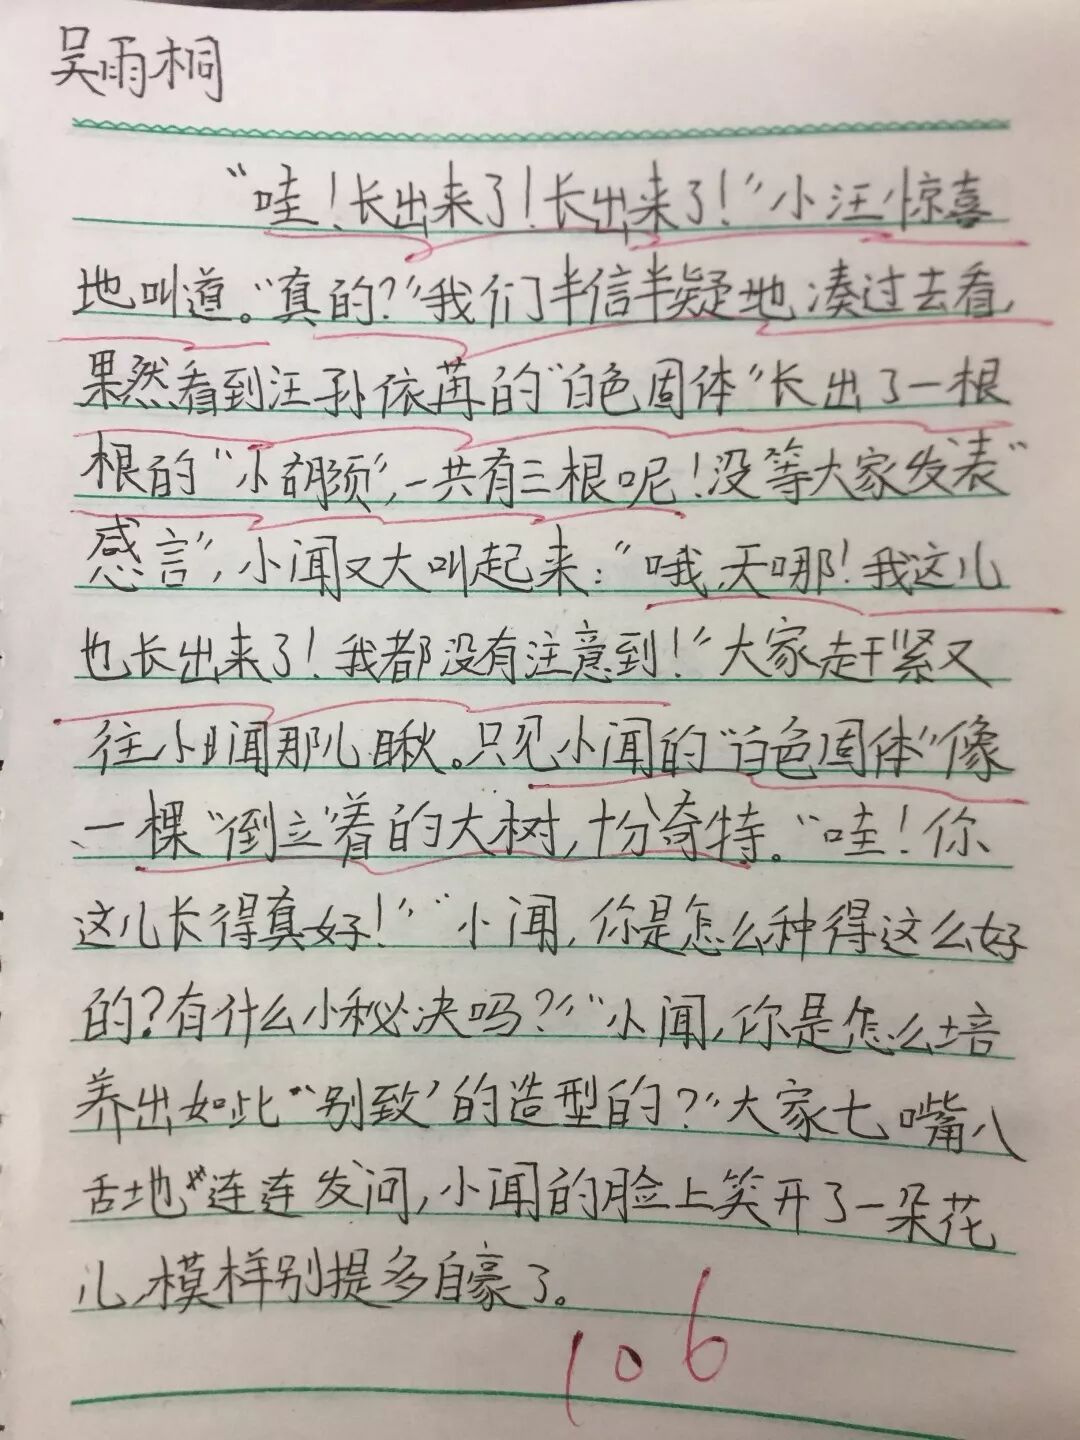 吴雨桐
“哇！长出来了！长出来了！”小汪惊喜
地叫道。“真的？”我们半信半疑地凑过去看，
果然看到汪孙依苒的“白色固体”长出了一根
根的“小胡须”，一共有三根呢！没等大家发表“
感言”，小闻又大叫起来：“哦，天哪！我这儿
也长出来了！我都没有注意到！”大家赶紧又
往小闻那儿瞅。只见小闻的“白色固体”像
一棵“倒立”着的大树，十分奇特。“哇！你
这儿长得真好！”“小闻，你是怎么种得这么好
的？有什么小秘决吗？”“小闻，你是怎么培
养出如此“别致”的造型的？”大家七嘴八
舌地连连发问，小闻的脸上笑开了一朵花
儿，模样别提多自豪了。
106